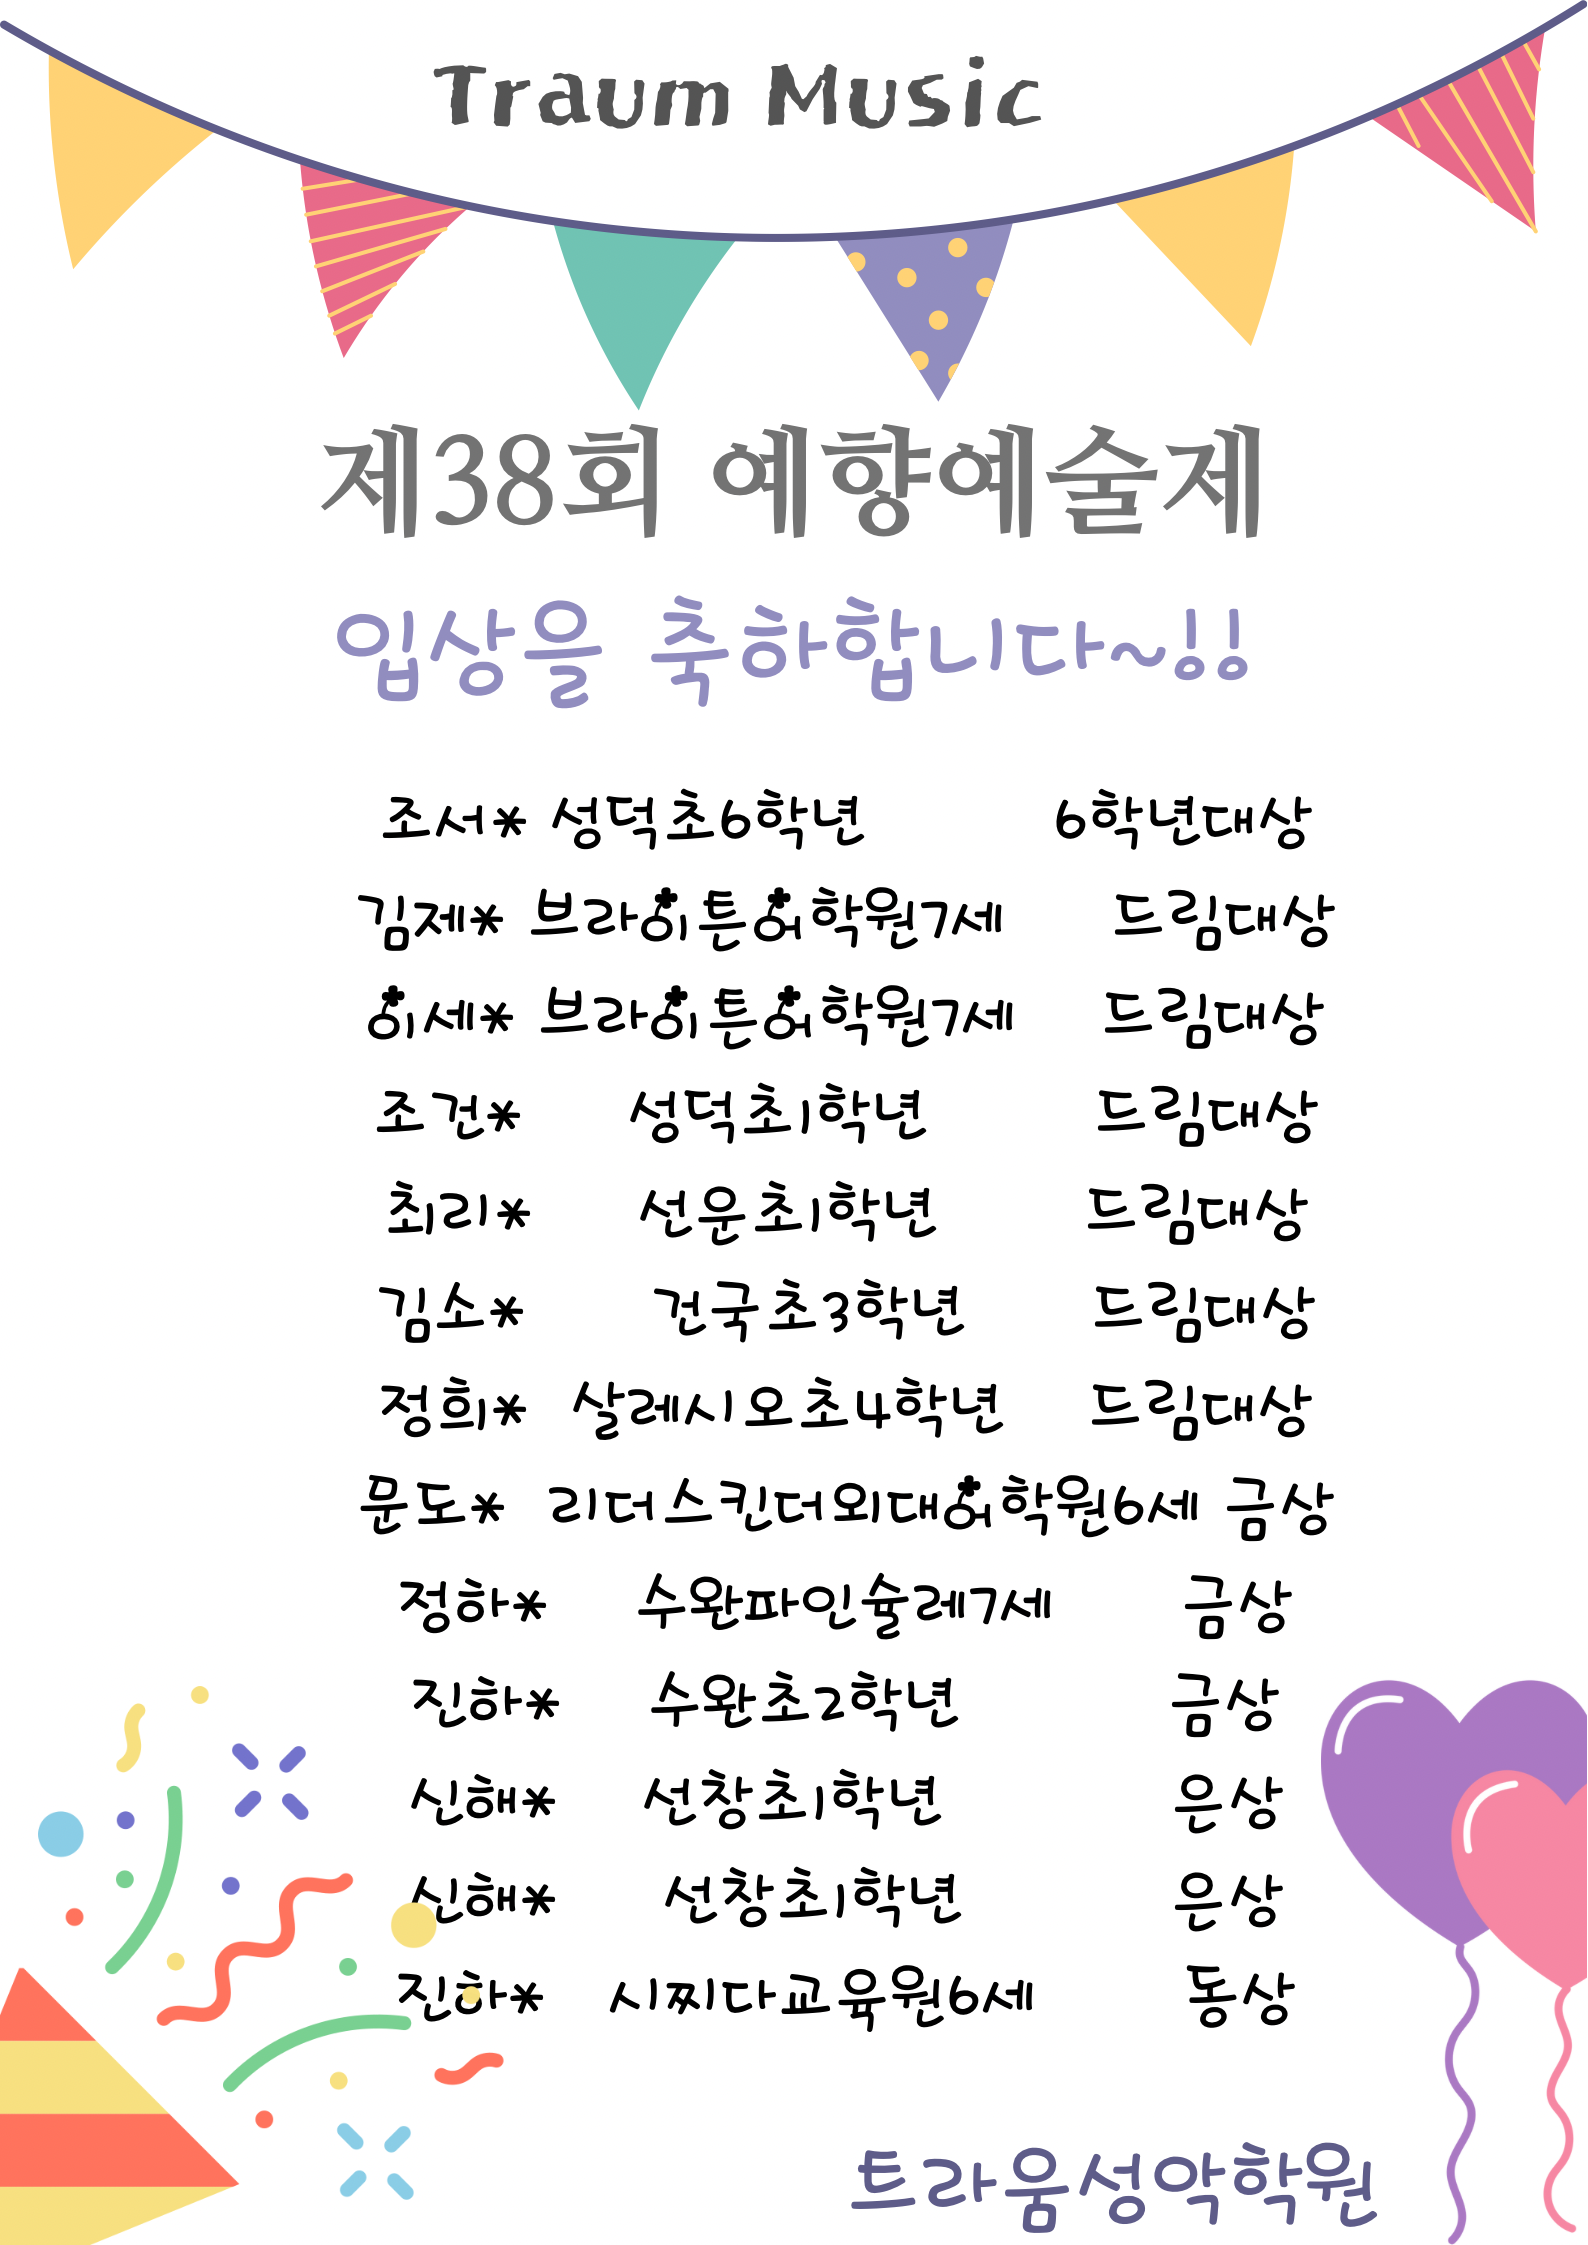 Traum Music
제38회 예향예술제
입상을 축하합니다~!!
조서* 성덕초6학년 6학년대상
김제* 브라이튼어학원7세 드림대상
이세* 브라이튼어학원7세 드림대상
조건* 성덕초1학년 드림대상
최리* 선운초1학년 드림대상
김소* 건국초3학년 드림대상
정희* 살레시오초4학년 드림대상
문도* 리더스킨더외대어학원6세 금상
정하* 수완파인슐레7세 금상
진하* 수완초2학년 금상
신해* 선창초1학년 은상
신해* 선창초1학년 은상
진하* 시찌다교육원6세 동상
트라움성악학원